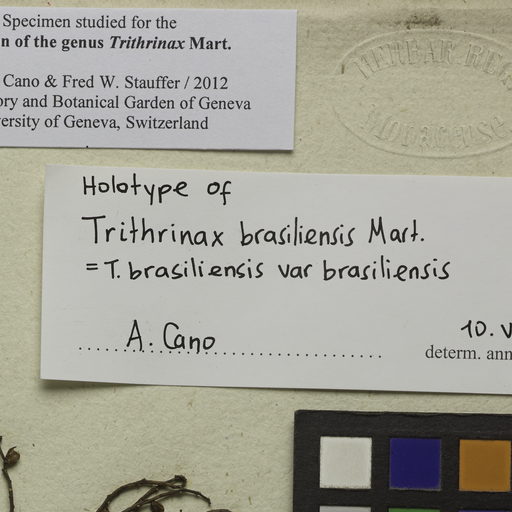 Specimen studied for the
n of the genus Trithrinax Mart.
Cano & Fred W. Stauffer / 2012
ory and Botanical Garden of Geneva
ersity of Geneva, Switzerland
Holotype of
Trithrinax brasiliensis Mart.
= T. brasiliensis var brasiliensis
A. Cano
10. V
determ. ann